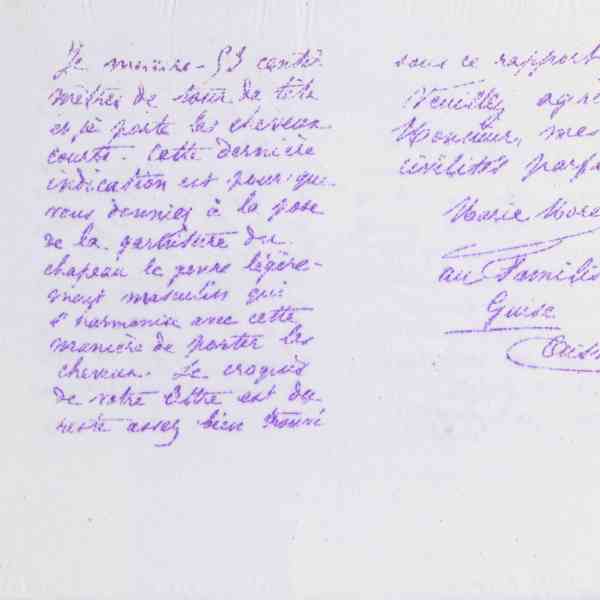 Je mesure 53 centi-
mètres de tour de tête
et je porte les cheveux
courts. Cette dernière
indication est pour que
vous donniez à la pose
de la garniture du
chapeau le genre légère-
ment masculin qui
s'harmonise avec cette
manière de porter les
cheveux. Le croquis
de votre lettre est du
reste assez bien trouvé
sous ce rapport
Veuillez agré
Monsieur, mes
civilités parfa
Marie More
au Familis
Guise